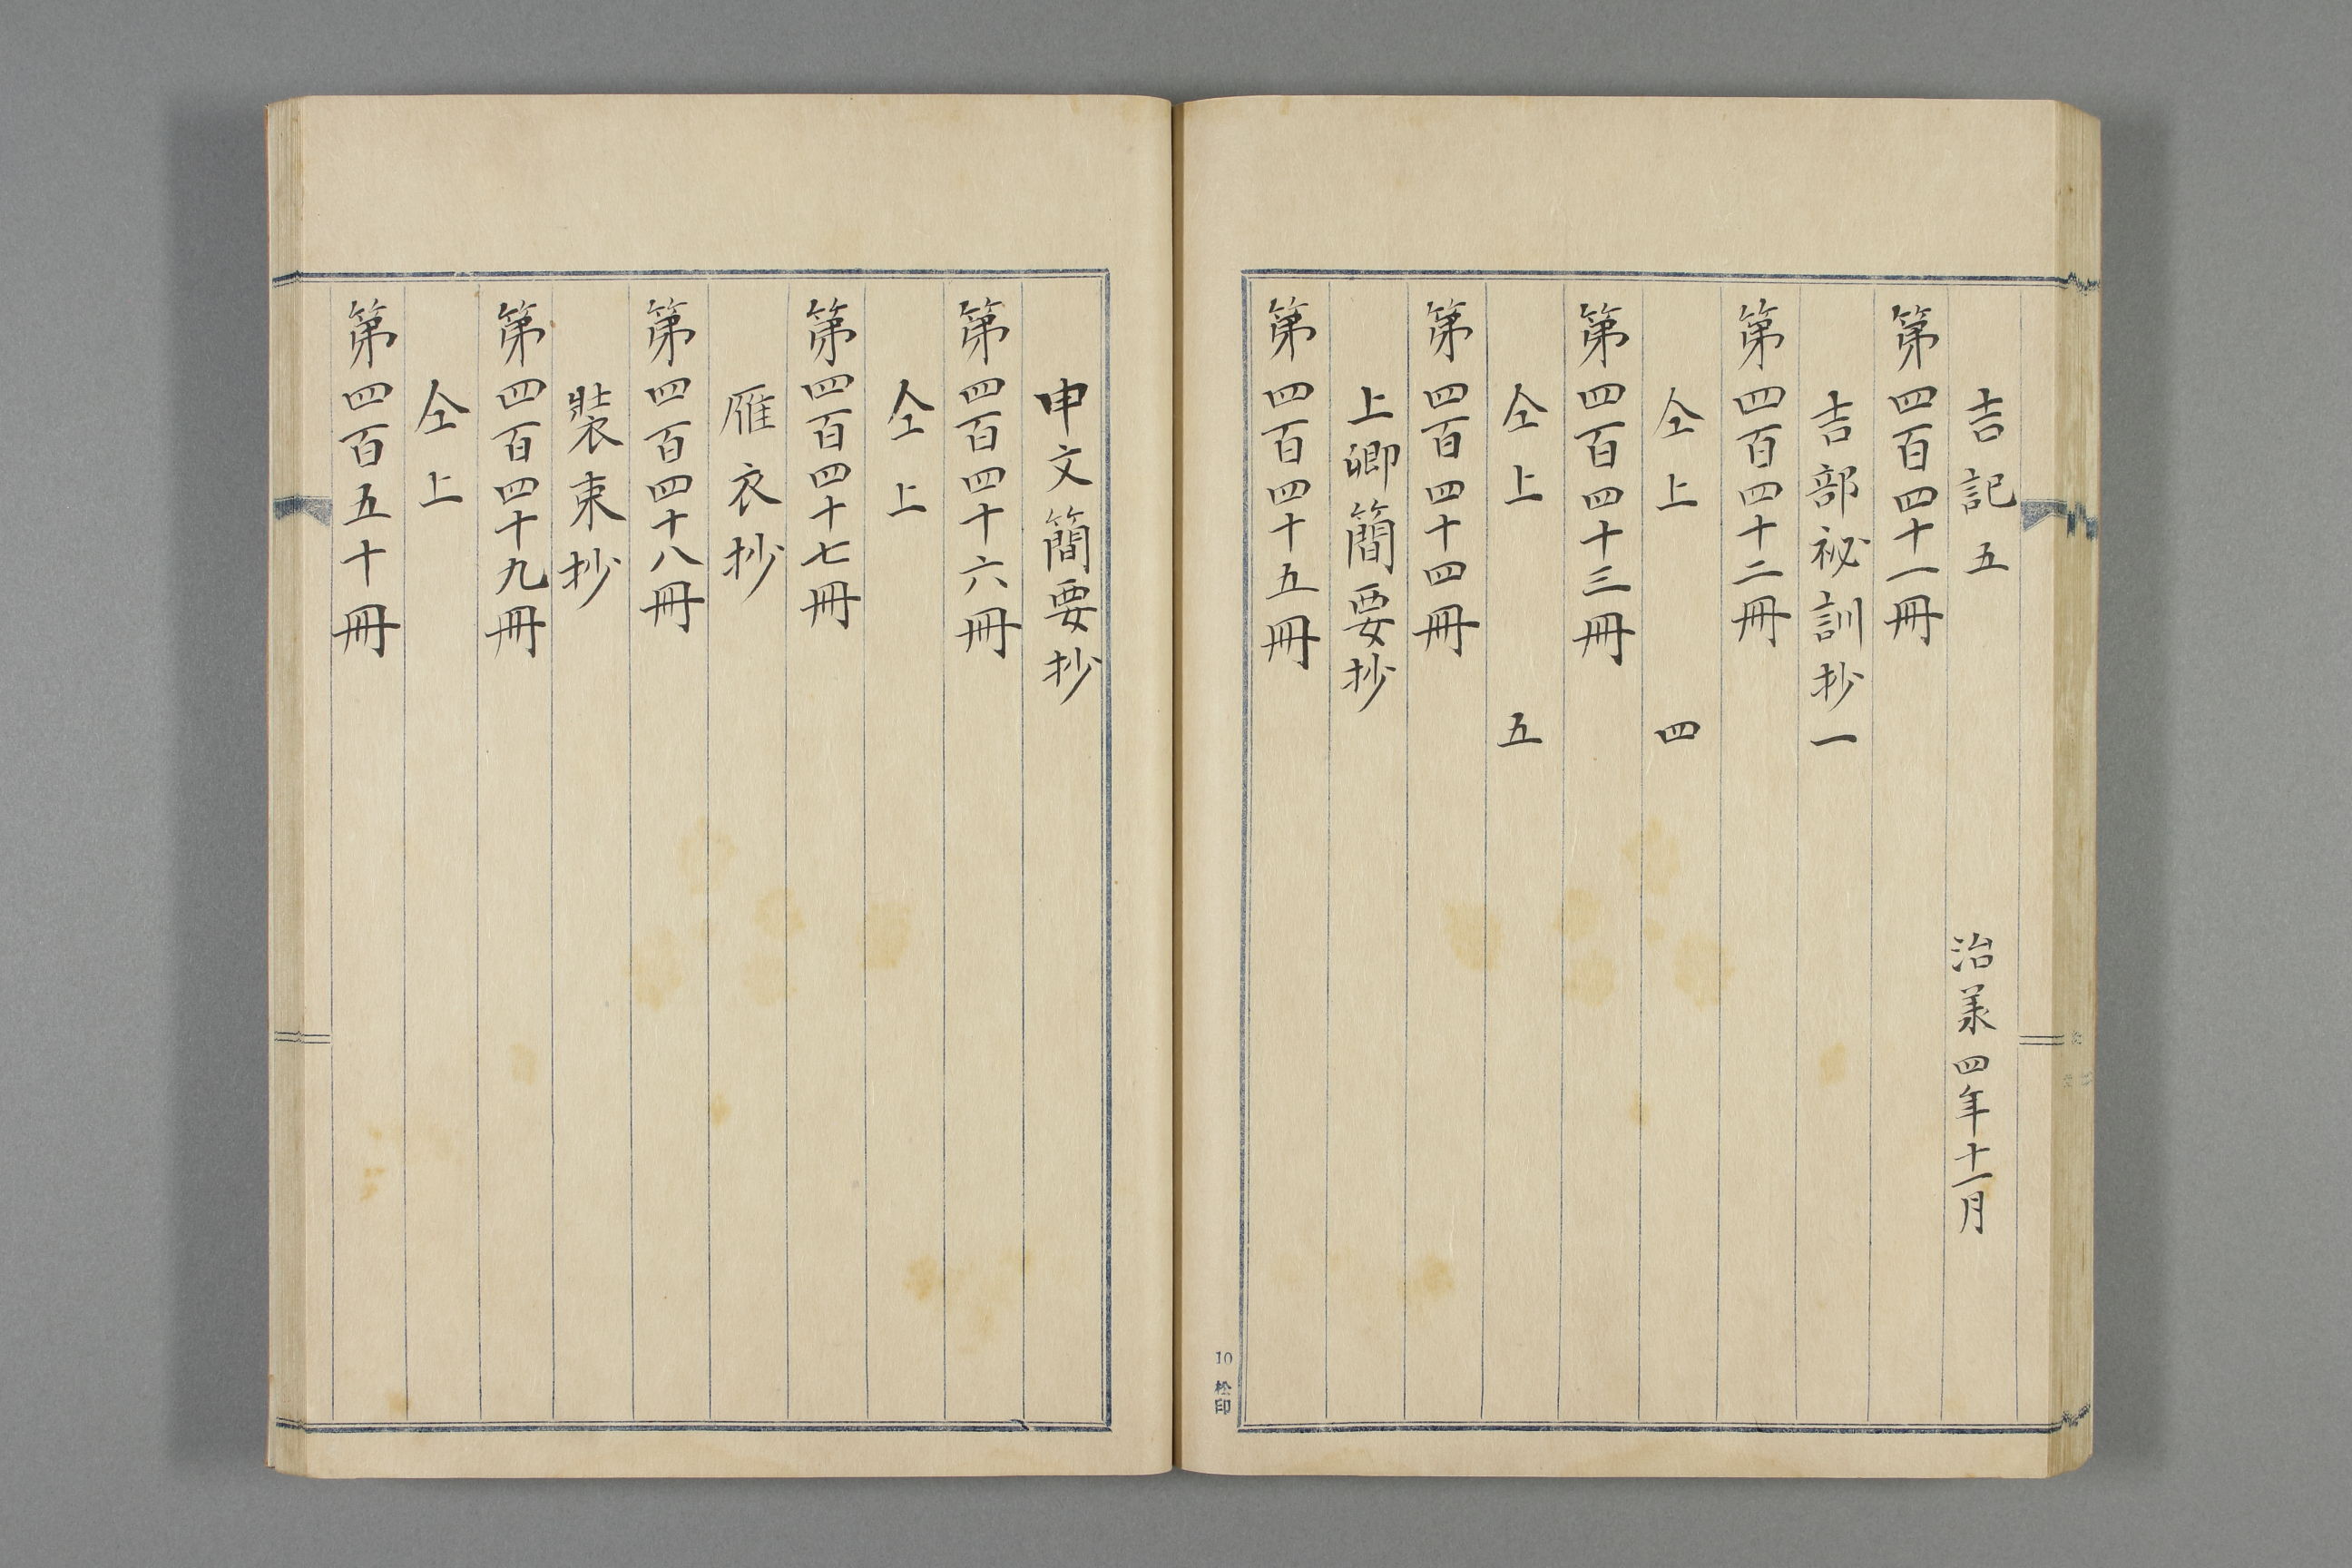 吉記五　治承四年十一月
第四百四十一冊
吉部祕訓抄一
第四百四十二冊
仝上　四
第四百四十三冊
仝上　五
第四百四十四冊
上卿簡要抄
第四百四十五冊
10 松印
申文簡要抄
第四百四十六冊
仝上
第四百四十七冊
雁衣抄
第四百四十八冊
裝束抄
第四百四十九冊
仝上
第四百五十冊